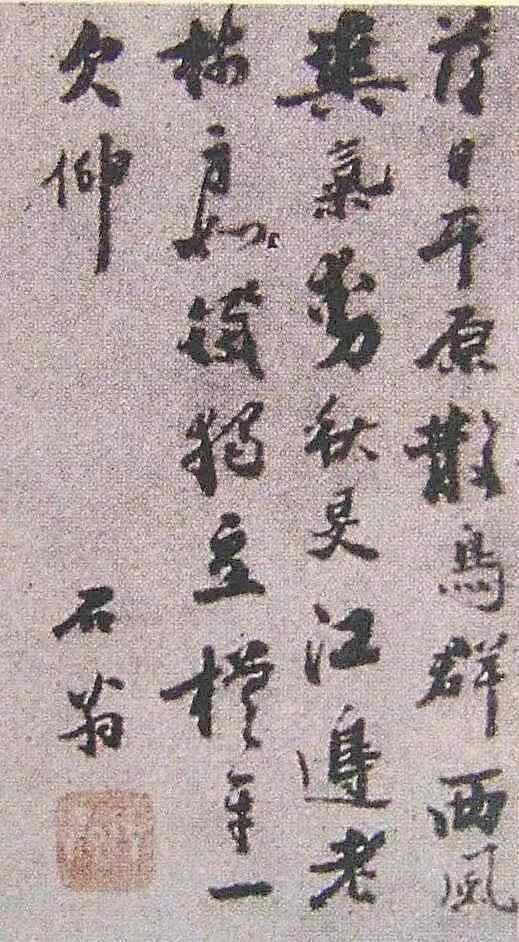 日平原散鳥群西風
爽氣動秋旻江邊老
樹身如鐵獨立一
欠伸
石翁